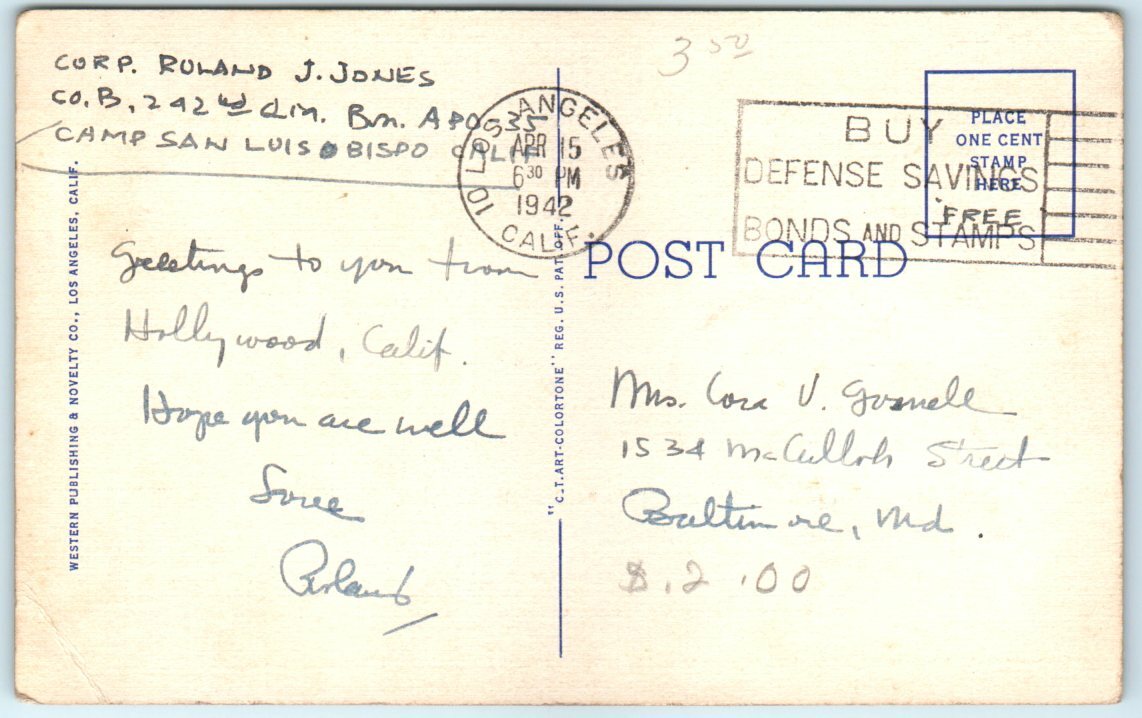 3 50
CORP. ROLAND J. JONES
CO. B, 242nd Q.M. Bn. APO
CAMP SAN LUIS OBISPO CALIF
LOS ANGELES
10
APR 15
6 30 PM
1942
CALIF.
BUY
DEFENSE SAVINGS
BONDS AND STAMPS
PLACE
ONE CENT
STAMP
HERE
FREE
POST CARD
Greetings to you from
Hollywood, Calif.
Hope you are well
Love
Roland
Mrs. Cora V.
1534 McCulloh Street
Baltimore, Md.
$.2.00
WESTERN PUBLISHING & NOVELTY CO., LOS ANGELES, CALIF.
"C.T.ART-COLORTONE" REG. U.S. PAT. OFF.